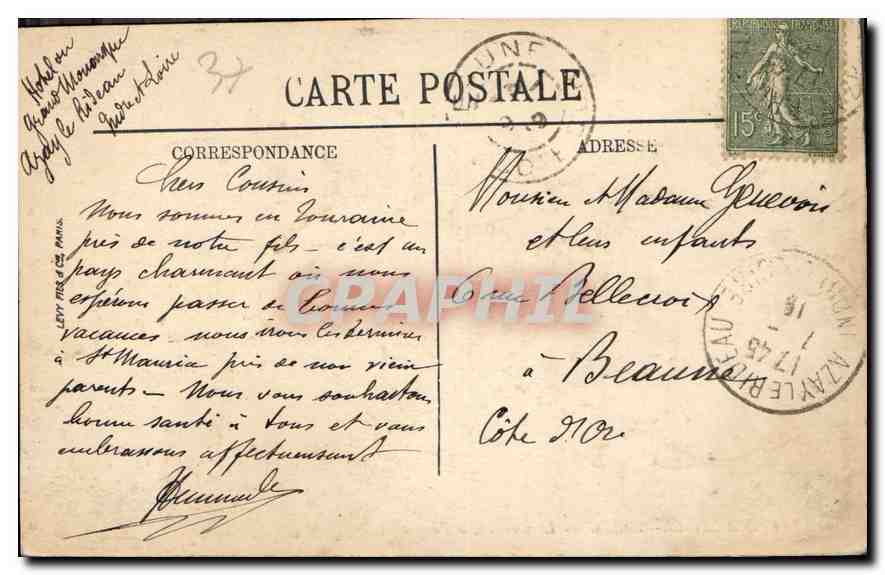 Hotel du
Grand Monarque
Azay le Rideau
Indre et Loire
37
CARTE POSTALE
CORRESPONDANCE
ADRESSE
LEVY FILS & Cie, PARIS.
RÉPUBLIQUE FRANÇAISE
15c
Chers Cousins
Nous sommes en Touraine
près de notre fils - c'est un
pays charmant où nous
espérons passer de bonnes
vacances nous irons les terminer
à St Maurice près de nos vieux
parents - Nous vous souhaitons
bonne santé à tous et vous
embrassons affectueusement
Monsieur et Madame Genevois
et leurs enfants
6 rue Bellecroix
à
Beaune
Côte d'Or
AZAY LE RIDEAU
17 45
CPAPHIL